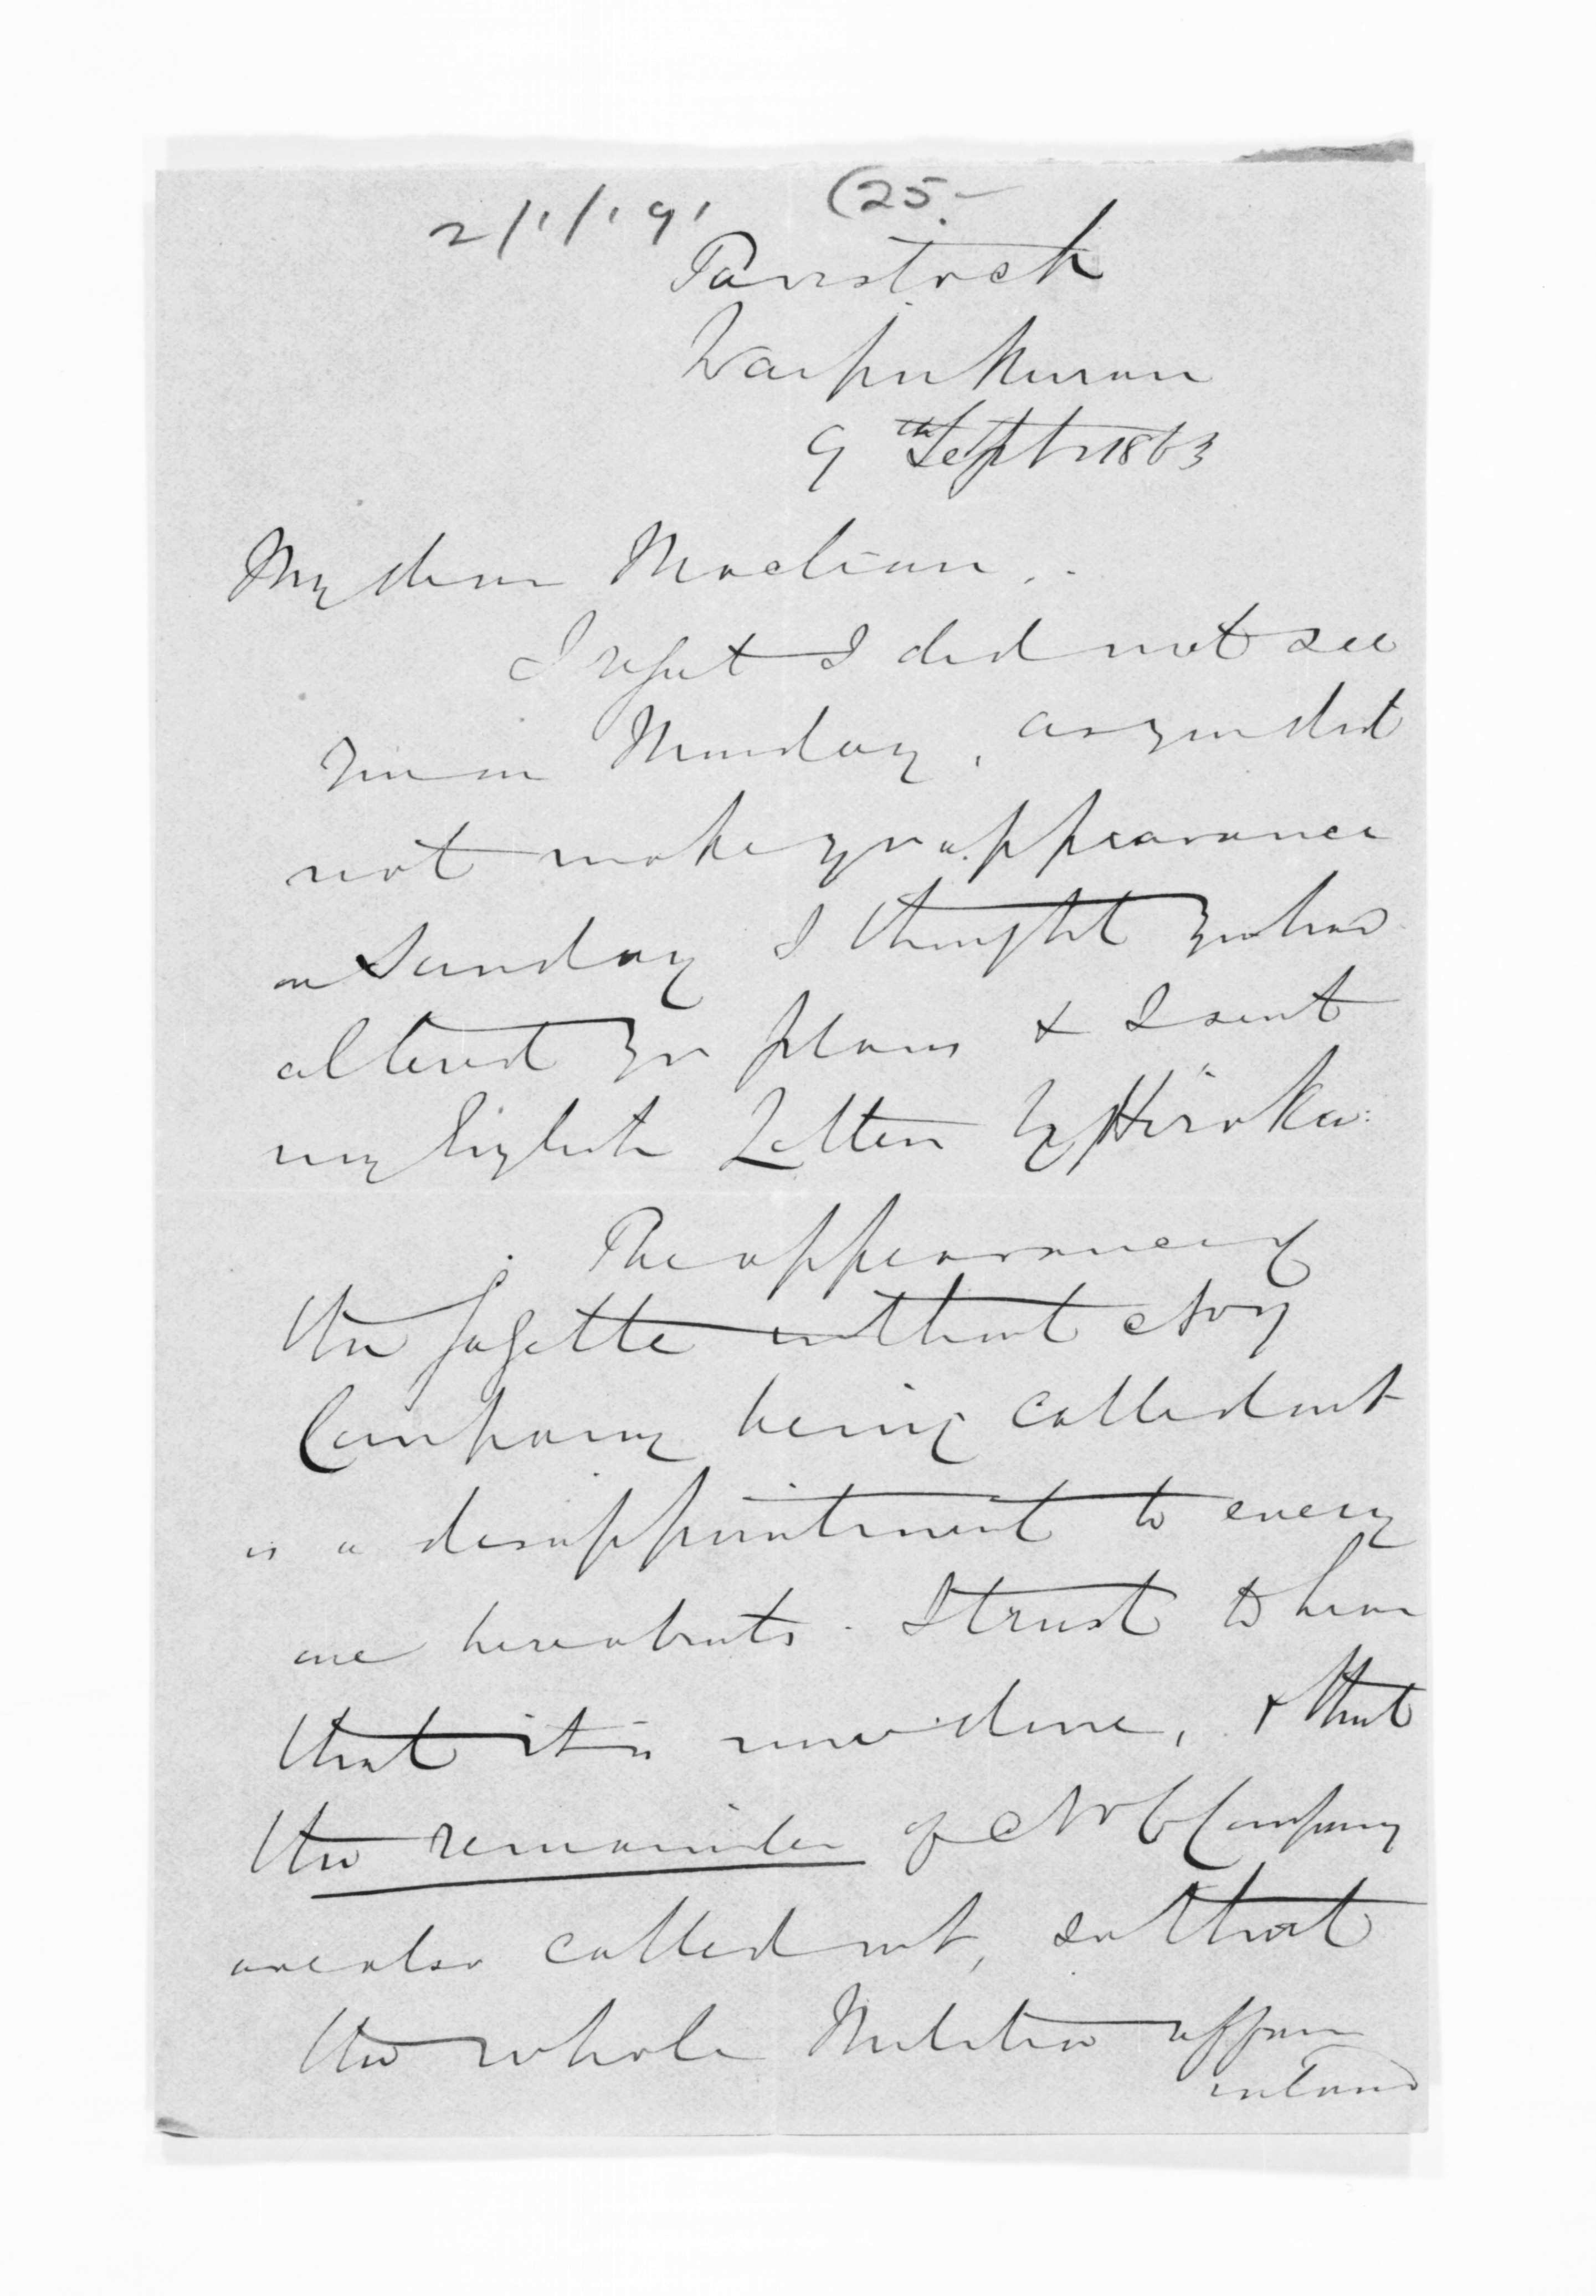 2/1/191 (25.-
Tavistock
Waipukurau
9th Septr 1863
My dear Maclean..
I regret I did not see
you on Monday, as you did
not make yr appearance
on Sunday I thought you had
altered yr plans & I sent
my Letter by Hiraka:
The appearance of
the Gazette without Noy
Company being called out
is a disappointment to every
one hereabouts. I trust to hear
that it is now done, & that
the remainder of No 6 Company
are also called out, so that
the whole Militia affair
inland